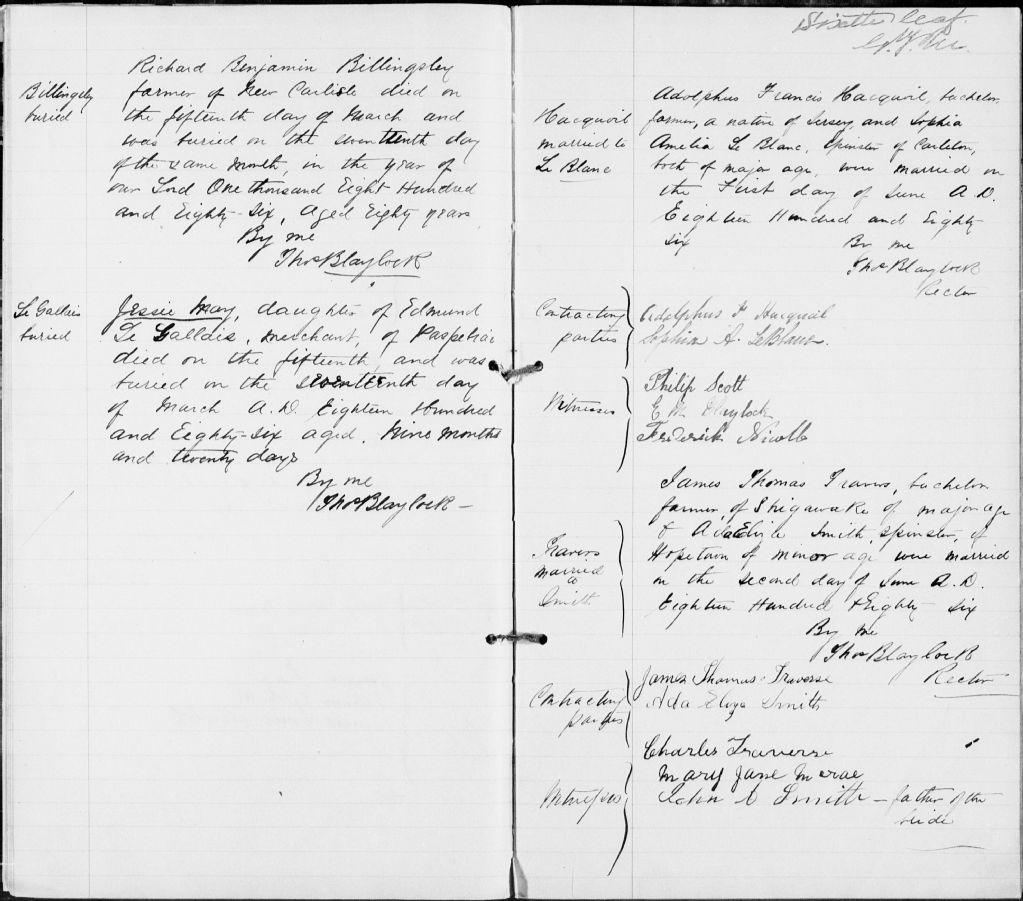 Billingsley
buried
Richard Benjamin Billingsley
farmer of New Carlisle died on
the fifteenth day of March and
was buried on the seventeenth day
of the same month, in the year of
our Lord One thousand Eight Hundred
and Eighty-Six, Aged Eighty years
By me
Thos Blaylock
Le Gallais
buried
Jessie May, daughter of Edmund
Le Gallais, merchant, of Paspebiac
died on the fifteenth, and was
buried on the seventeenth day
of March A.D. Eighteen Hundred
and Eighty-Six aged, Nine months
and twenty days
By me
Thos Blaylock —
leaf
Hacquoil
married to
Le Blanc
Adolphus Francis Hacquoil, bachelor,
farmer, a native of Jersey, and Sophia
Amelia Le Blanc, Spinster of Carleton,
both of major age, were married on
the First day of June A.D.
Eighteen Hundred and Eighty
Six
By me
Thos Blaylock
Rector
Contracting
parties
Adolphus F Hacquoil
Sophia A. LeBlanc.
Witnesses
Philip Scott
E M Blaylock
Frederick Nicolle
Travers
married
to
Smith
James Thomas Travers, bachelor
farmer, of Shigawake of major age
& Ada Elize Smith, spinster, of
Hopetown of minor age were married
on the second day of June A.D.
Eighteen Hundred & Eighty Six
By me
Thos Blaylock
Rector
Contracting
parties
James Thomas Traverse
Ada Eliza Smith
Witnesses
Charles Traverse
Mary Jane Mcrae
John A Smith — father of the
bride